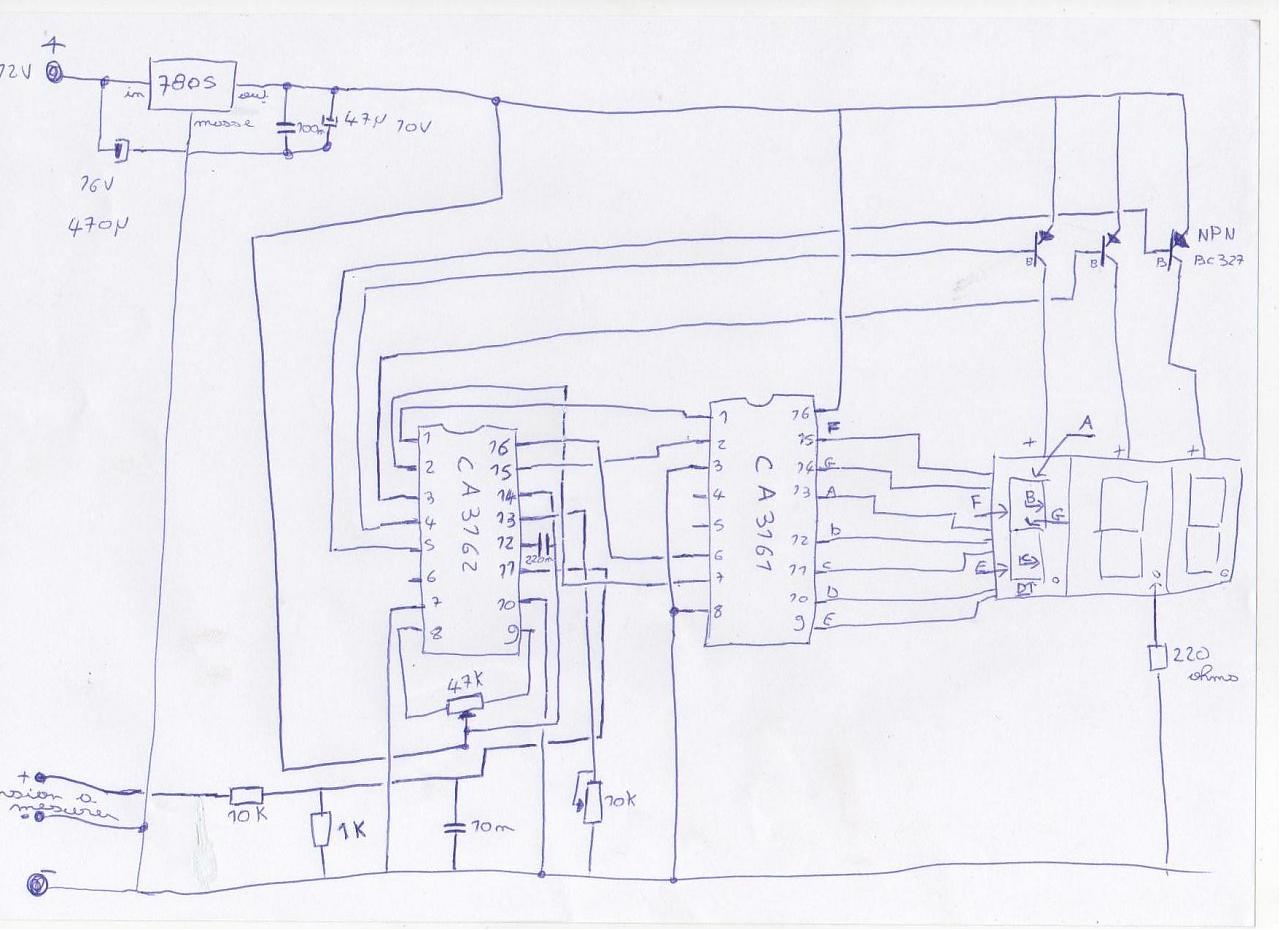 +
12V
7805
in
out
masse
100n
47µ 10V
16V
470µ
NPN
BC327
B
B
B
CA3162
1
2
3
4
5
6
7
8
16
15
14
13
12
11
10
9
220n
CA3161
1
2
3
4
5
6
7
8
16
15
14
13
12
11
10
9
F
G
A
b
C
D
E
+
+
+
A
F
B
G
E
C
DT
220
ohms
47K
+
nsion a
mesurer
-
10K
1K
10n
10K
-